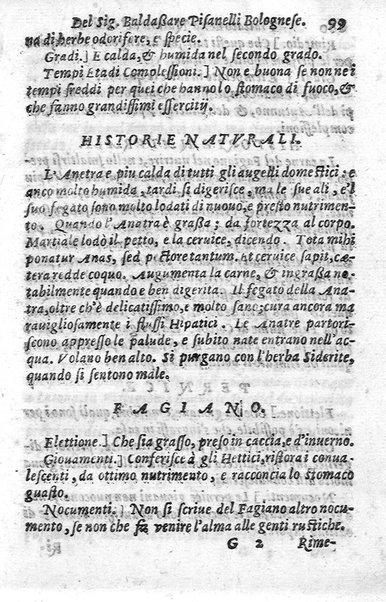 Del Sig. Baldaßare Pisanelli Bolognese. 99
na di herbe odorifere, e specie.
Gradi.] E calda, & humida nel secondo grado.
Tempi Etadi Complessioni.] Non e buona se non ne i
tempi freddi per quei che hanno lo stomaco di fuoco, &
che fanno grandissimi essercitÿ.
HISTORIE NATVRALI.
L'Anetra e piu calda di tutti gli augelli domestici: e
anco molto humida, tardi si digerisce, ma le sue ali, e'l
suo fegato sono molto lodati di nuouo, e presto nutrimen-
to. Quando l'Anatra è graßa; da fortezza al corpo.
Martiale lodò il petto, e la ceruice, dicendo. Tota mihi
ponatur Anas, sed pectore tantum. Et ceruice sapit, cæ-
tera redde coquo. Augumenta la carne, & ingraßa no-
tabilmente quando e ben digerita. Il fegato della Ana-
tra, oltre ch'è delicatissimo, e molto sano; cura ancora ma
rauigliosamente i flussi Hipatici. Le Anatre partori-
scono appresso le palude, e subito nate entrano nell'ac-
qua. Volano ben alto. Si purgano con l'herba Siderite,
quando si sentono male.
FAGIANO.
Elettione.] Che sia grasso, preso in caccia, e d'inuerno.
Giouamenti.] Conferisce à gli Hettici, ristora i conua-
lescenti, da ottimo nutrimento, e racconcia lo stomaco
guasto.
Nocumenti.] Non si scriue del Fagiano altro nocu-
mento, se non che fa venire l'alma alle genti rustiche.
G 2 Rime-